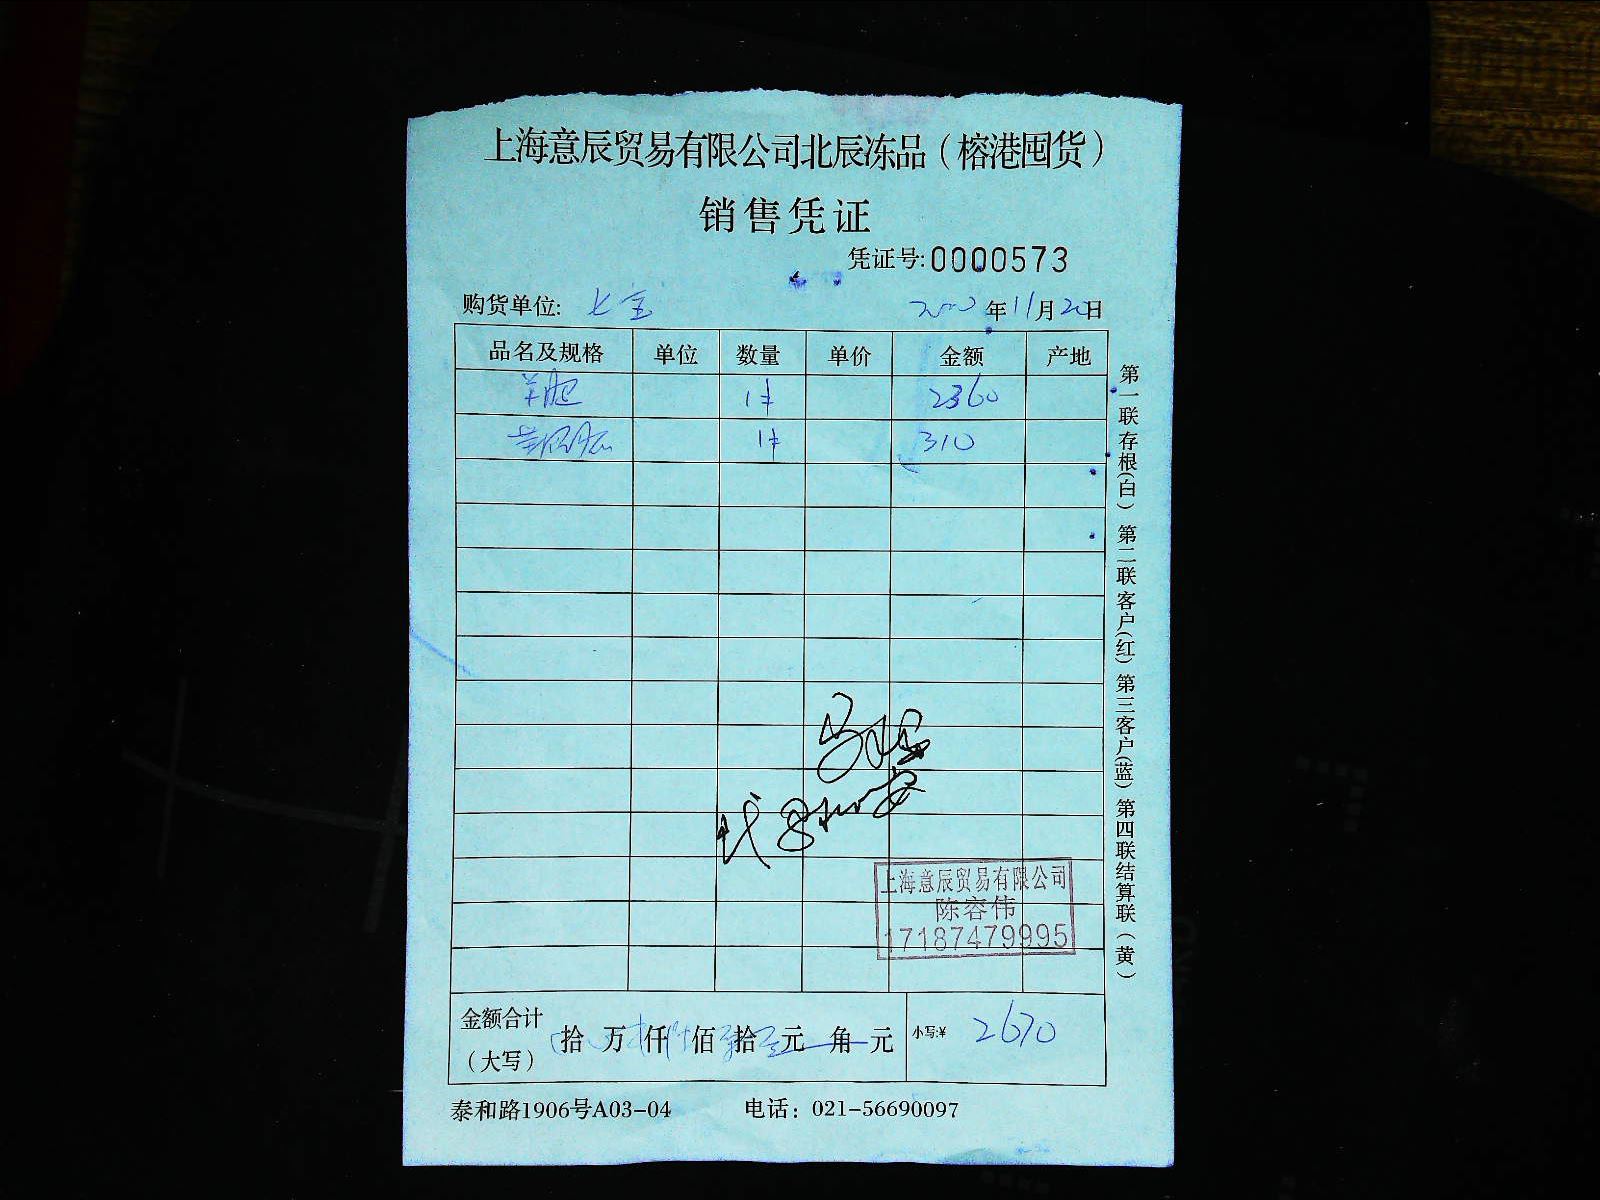 上海意辰贸易有限公司北辰冻品（榕港囤货）
销售凭证
凭证号:0000573
购货单位: 七宝 年11月20日
品名及规格 单位 数量 单价 金额 产地
1件 2360
1件 310
上海意辰贸易有限公司
陈容伟
17187479995
金额合计（大写） 拾 万 仟 佰 拾 元 角 元 小写:¥ 2670
泰和路1906号A03-04 电话：021-56690097
第一联存根(白) 第二联客户(红) 第三客户(蓝) 第四联结算联（黄）